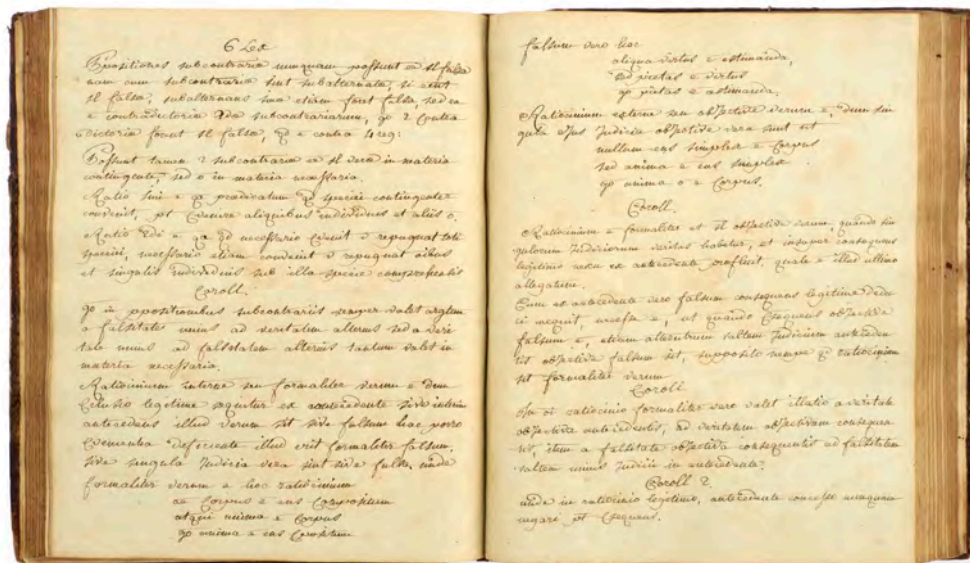 6 Lex
Ppositiones subcontraria nunquam possunt ee sl falsa
nam cum subcontraria sint subalternata, si eent
sl falsa, subalternans sua etiam foret falsa, sed ea
e contradictoria subcontrariarum, go 2 contra
dictoria forent sl falsa, qd e contra 4 reg:
Possunt tamen 2 subcontraria ee sl vera in materia
contingente, sed o in materia necessaria.
Ratio imi e qa praedicatum qd speciei contingenter
convenit, pt evenire aliquibus individuis et aliis o.
Ratio 2di e qa qd necessario convenit repugnat toti
speciei, necessario etiam convenit repugnat oibus
et singulis individuis sub illa specie comprehensis
Coroll.
go in ppositionibus subcontrariis semper valet argtum
a falsitate unius ad veritatem alterius sed a veri
tate unius ad falsitatem alterius tantum valet in
materia necessaria.
Ratiocinium interne seu formaliter verum e dum
Cclusio legitime sequitur ex antecedente sive interim
antecedens illud verum sit sive falsum hac porro
deficiente illud erit formaliter falsum,
sive singula Judicia vera sint sive falsa. unde
formaliter verum e hoc ratiocinium
oe Corpus e ens Compositum
atqui anima e Corpus
go anima e ens Compositum
falsum vero hoc
aliqua virtus e estimanda,
sed pietas e virtus
go pietas e aestimanda.
Ratiocinium externe seu objective verum e, dum sin
gula ejus Judicia objective vera sunt ut
nullum ens simplex e Corpus
sed anima e ens simplex
go anima o e Corpus.
Coroll.
Ratiocinium e formaliter et sl objective verum, quando sin
gulorum Judiciorum veritas habetur, et insuper consequens
legitimo nexu ex antecedente profluit, quale e illud ultimo
allegatum.
Cum ex antecedente vero falsum consequens legitime dedu
ci nequit, necesse e, ut quando Csequens objective
falsum e, etiam alterutrum saltem Judicium anteceden
tis objective falsum sit, supposito nempe qd ratiocinium
sit formaliter verum
Coroll
In oi ratiocinio formaliter vero valet illatio a veritate
objectiva antecedentis, ad veritatem objectivam consequen
tis, item a falsitate objectiva consequentis ad falsitatem
saltem unius Judicii in antecedente.
Coroll 2.
unde in ratiocinio legitimo, antecedente concesso nunquam
negari pt Csequens.